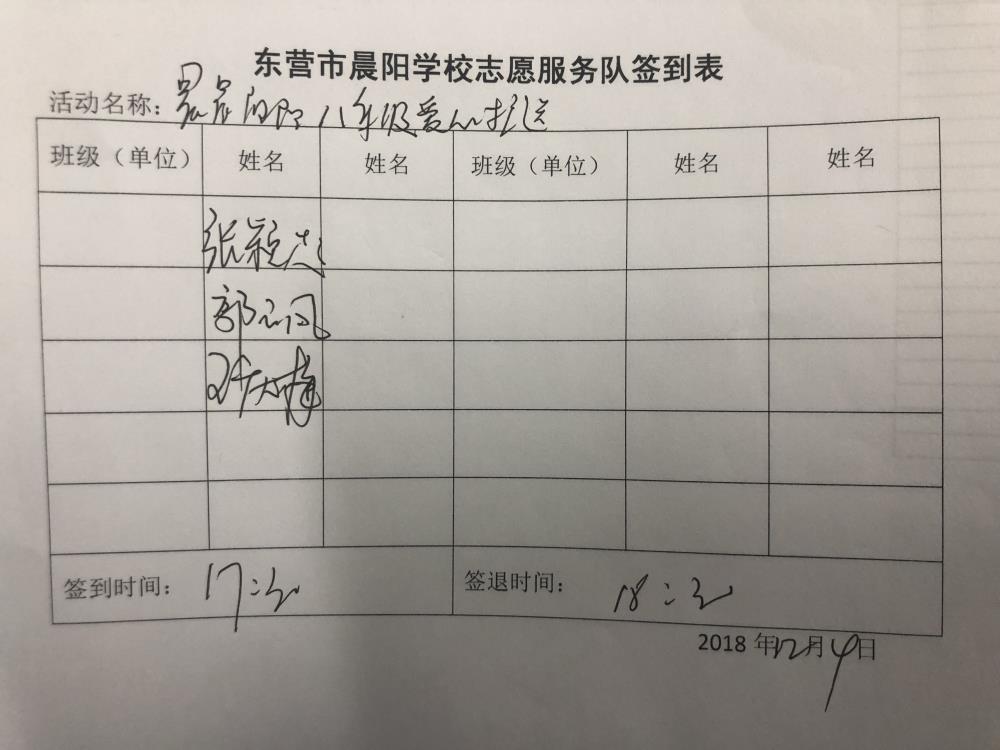 东营市晨阳学校志愿服务队签到表
活动名称：八年级爱心
班级（单位） 姓名 姓名 班级（单位） 姓名 姓名
张颖
郭风
签到时间：17: 签退时间：18:
2018 年12月4日